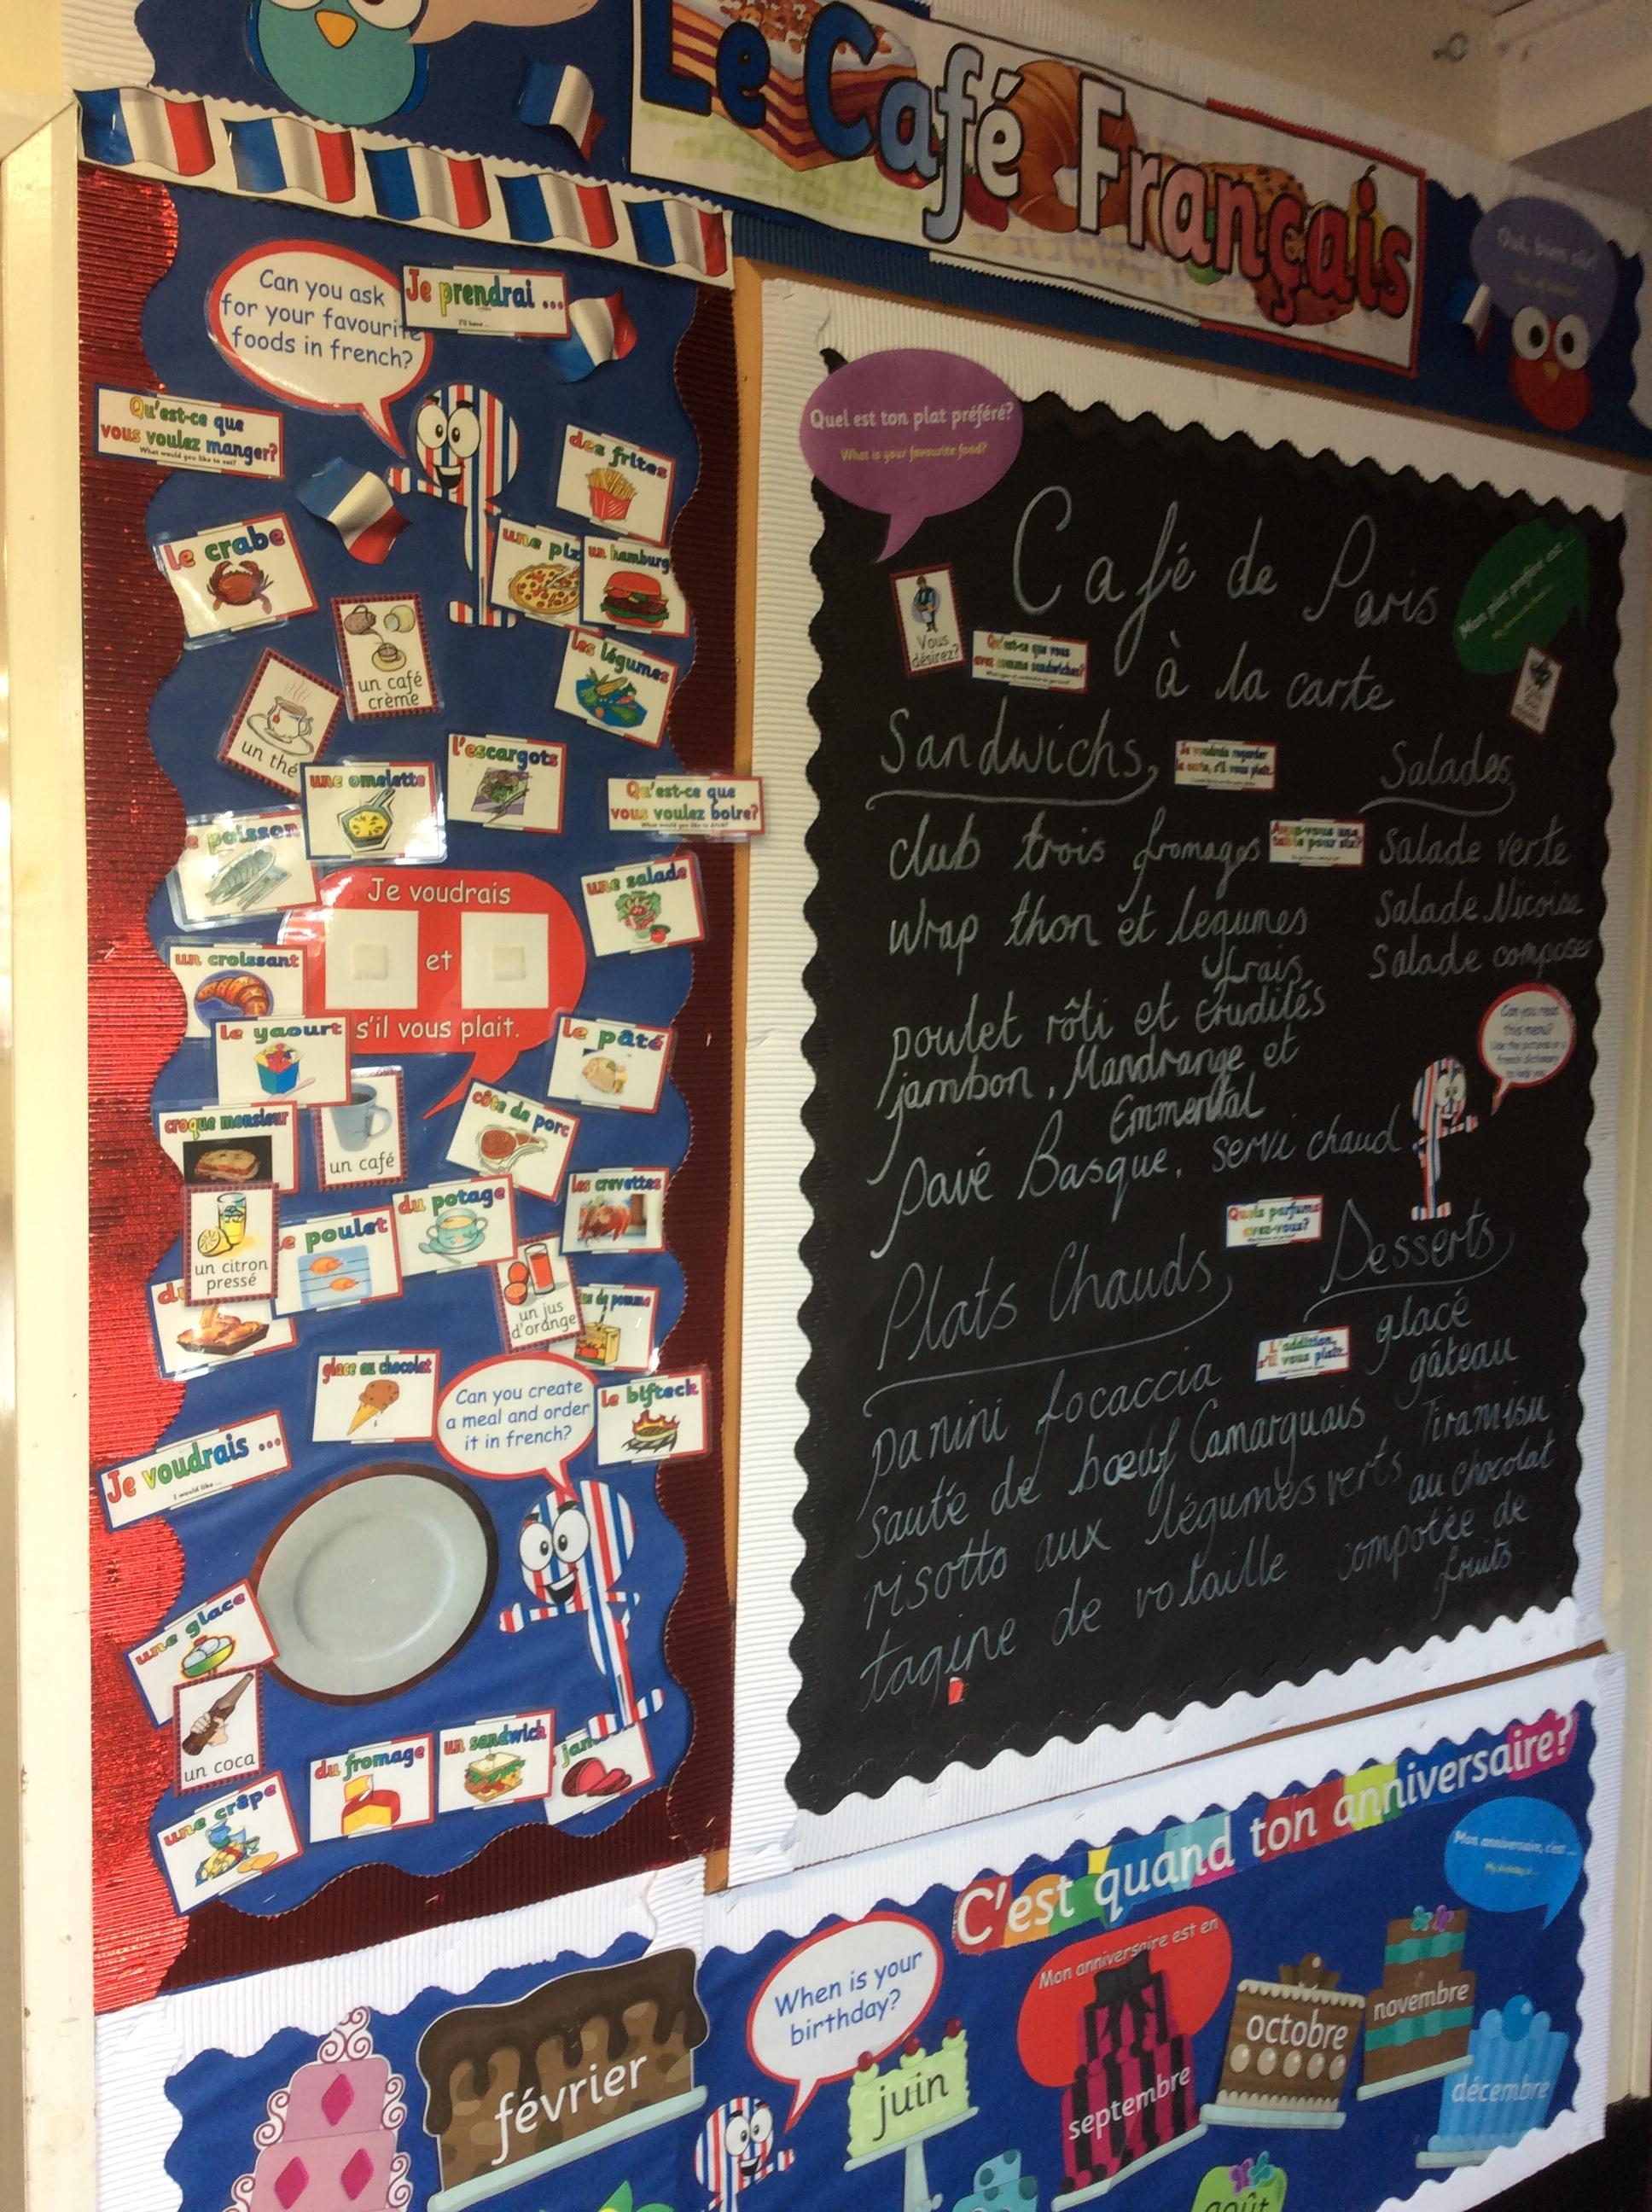 Le Café Français
Oui, bien sûr!
Can you ask
for your favourite
foods in french?
Je prendrai ...
I'll have ...
Qu'est-ce que
vous voulez manger?
What would you like to eat?
des frites
le crabe
un hamburg
un café
crème
les légumes
un thé
une omelette
l'escargots
Qu'est-ce que
vous voulez boire?
What would you like to drink?
poisson
Je voudrais
et
s'il vous plait.
une salade
un croissant
le yaourt
le pâté
croque monsieur
un café
côte de porc
les crevettes
un citron
pressé
poulet
du potage
un jus
d'orange
de pomme
glace au chocolat
Can you create
a meal and order
it in french?
le bifteck
Je voudrais ...
I would like ...
une glace
un coca
une crêpe
du fromage
un sandwich
Quel est ton plat préféré?
What is your favourite food?
Mon plat préféré est ...
Café de Paris
à la carte
Vous
désirez?
Qu'est-ce que vous
avez comme sandwiches?
Sandwichs
Je voudrais regarder
la carte, s'il vous plait.
club trois fromages
Avez-vous une
table pour six?
wrap thon et legumes
frais
poulet rôti et crudités
jambon, Mandrange et
Emmental
pavé Basque, servi chaud
Salades
Salade verte
Salade Nicoise
Salade composes
Can you read
this menu?
Use the pictures or a
french dictionary
to help you
Quels parfums
avez-vous?
Plats Chauds
L'addition,
s'il vous plait.
panini focaccia
sauté de bœuf Camarguais
risotto aux légumes verts
tagine de volaille
Desserts
glacé
gâteau
Tiramisu
au chocolat
compotée de
fruits
C'est quand ton anniversaire?
Mon anniversaire, c'est ...
My birthday is ...
When is your
birthday?
Mon anniversaire est en
février
juin
septembre
octobre
novembre
décembre
août